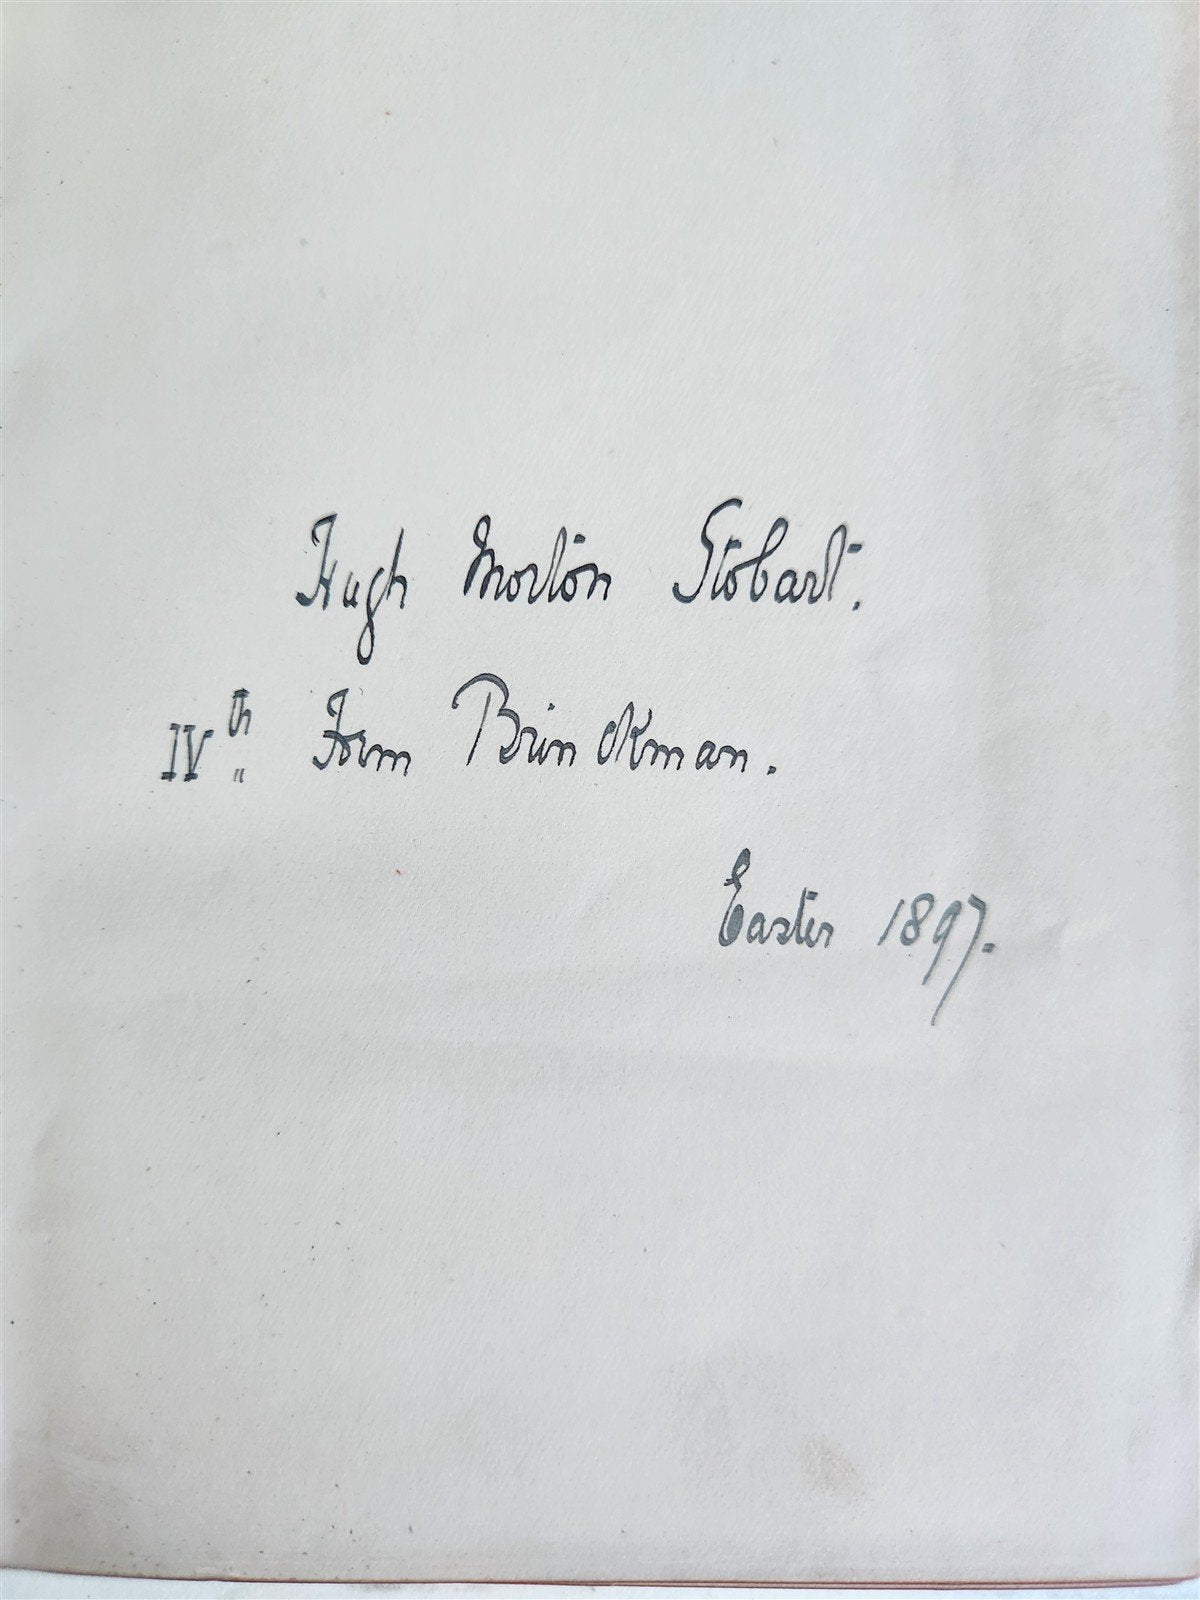 Hugh Morton Stobart.
IVth Form Brinckman.
Easter 1897.